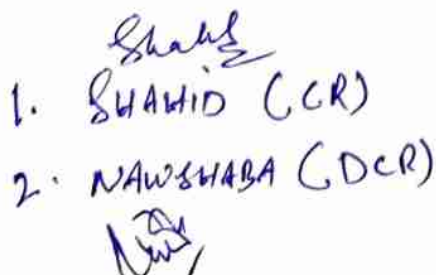 Shahid
1. SHAHID (CR)
2. NAWSHABA (DCR)